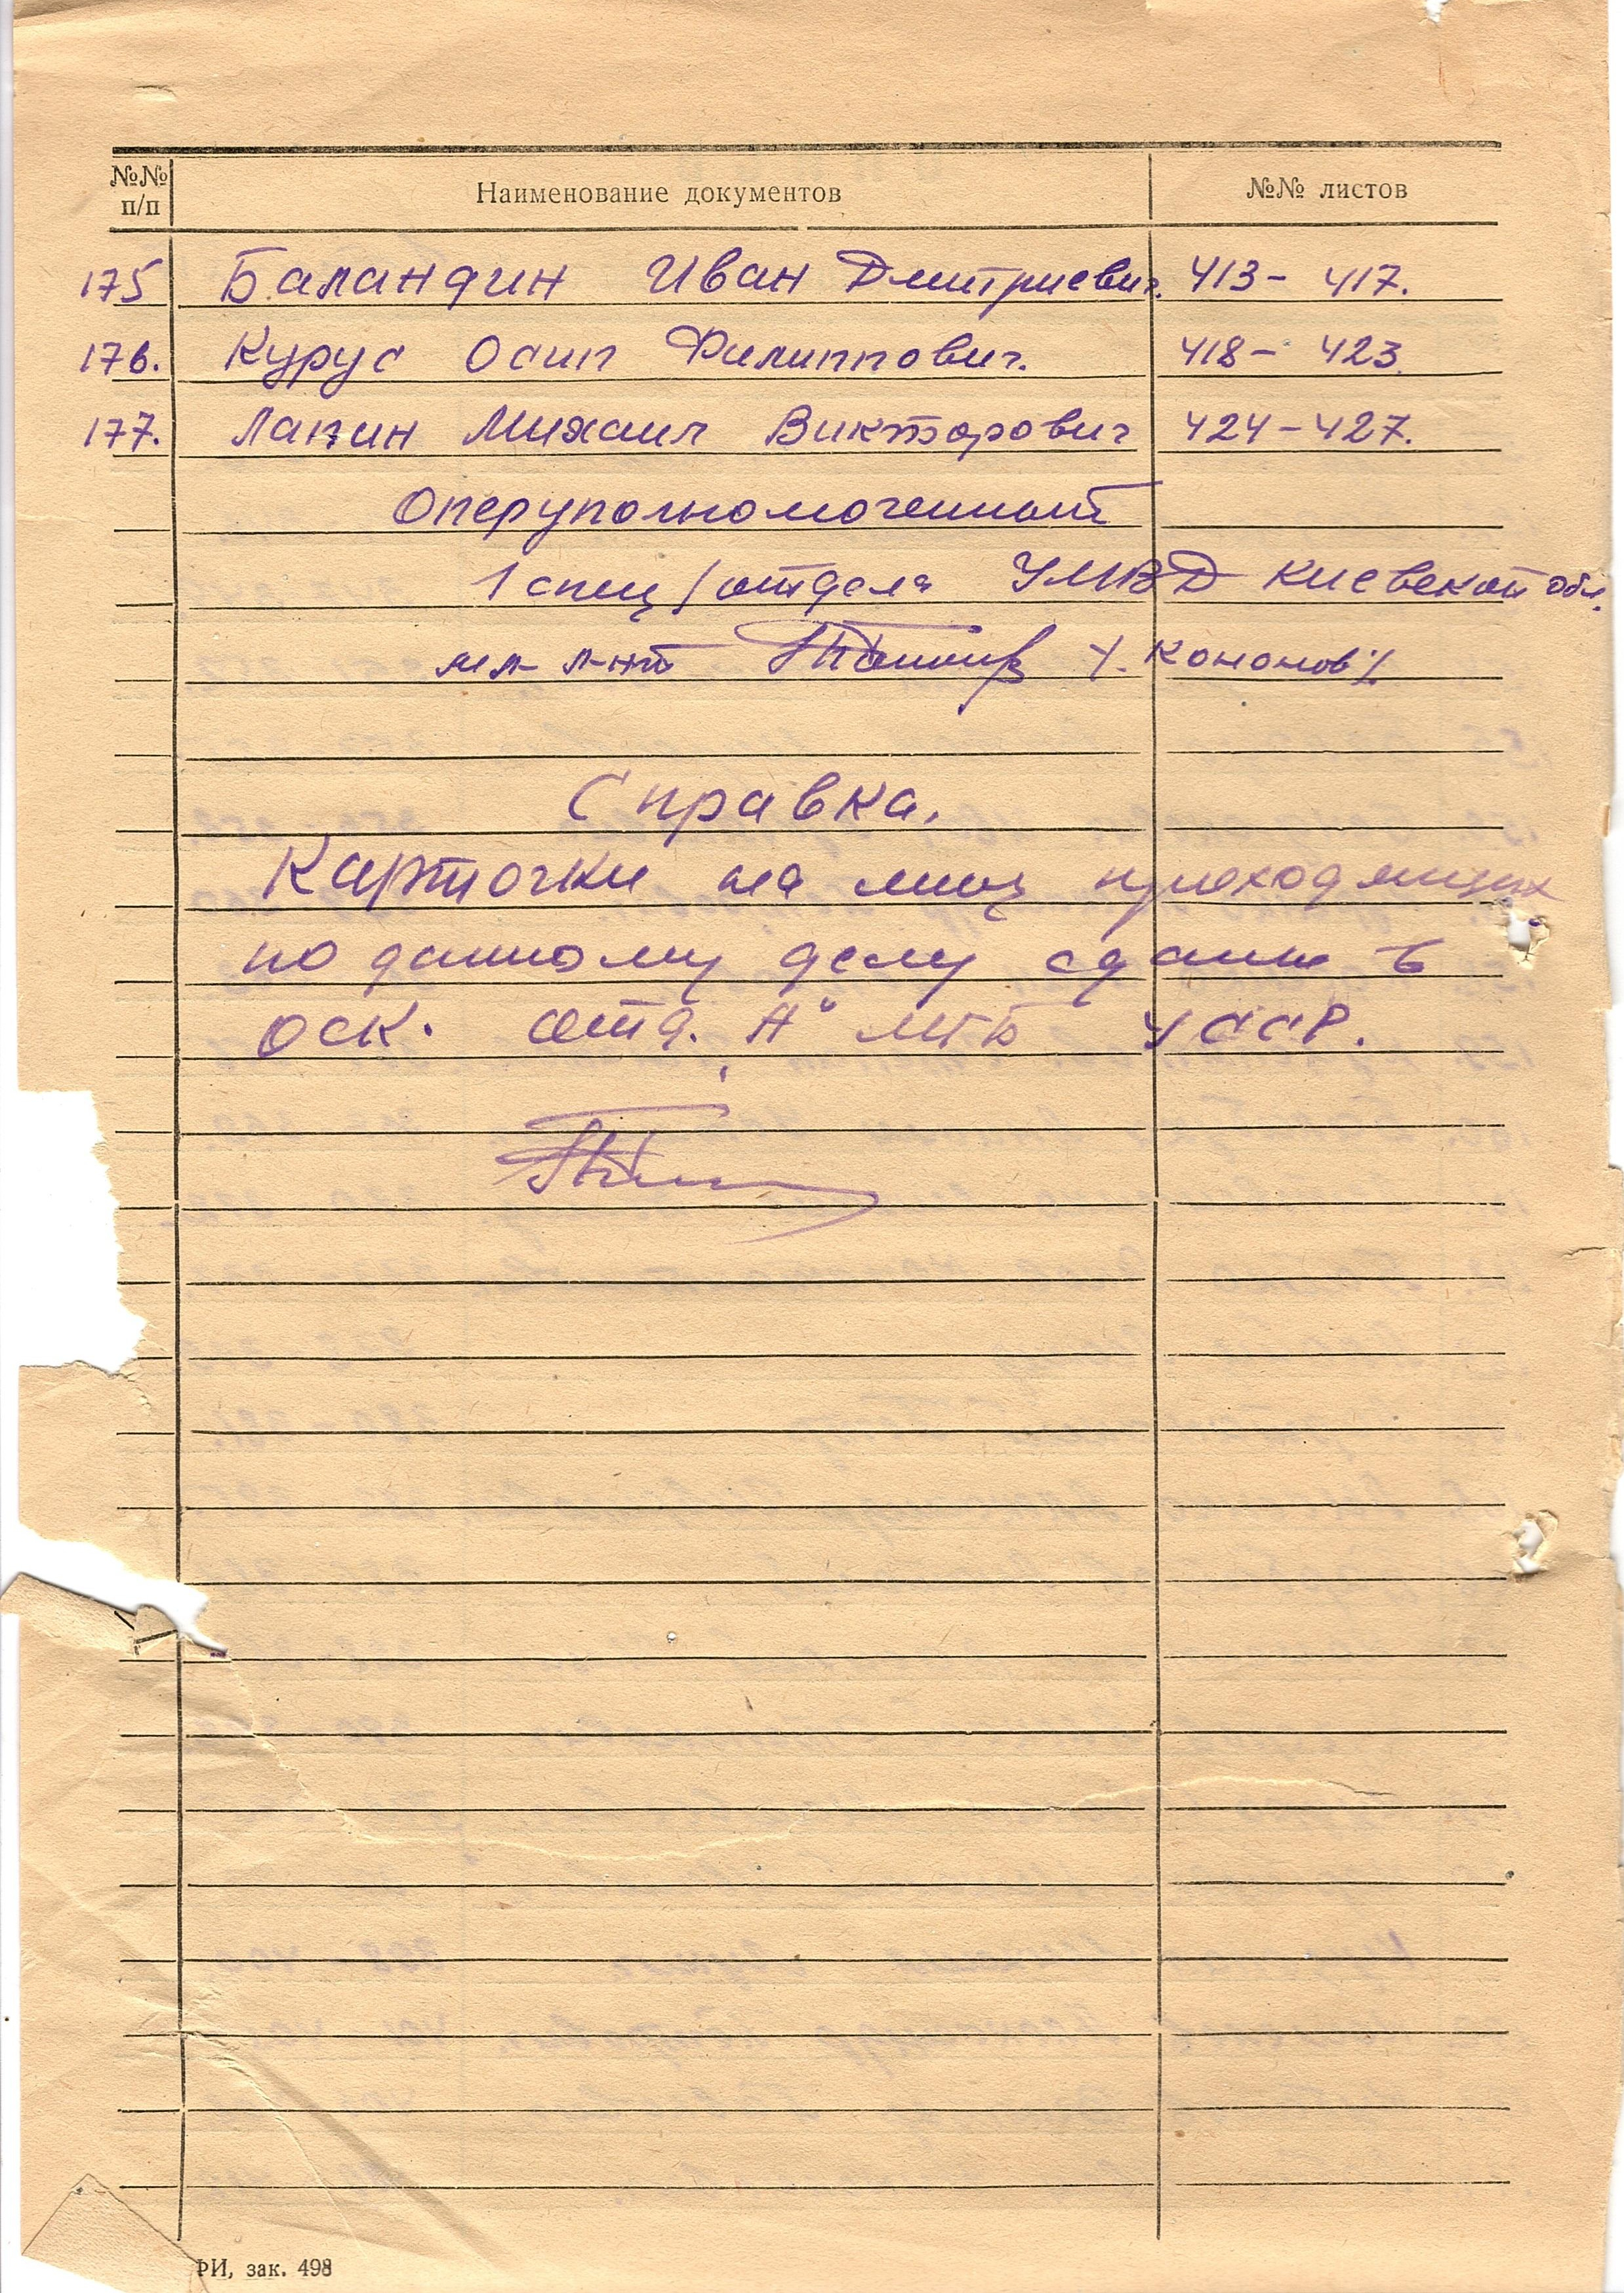 №№ п/п Наименование документов №№ листов
175 Баландин Иван Дмитриевич. 413 - 417.
176. Курус Осип Филиппович. 418 - 423.
177. Лапин Михаил Викторович 424 - 427.
Оперуполномоченный
1 спец/отдела УМВД Киевской обл.
мл л-нт /. Кононов /.
Справка.
Карточки на лиц приходящих
по данному делу сданы в
ОСК. отд. "А" МГБ УССР.
РИ, зак. 498